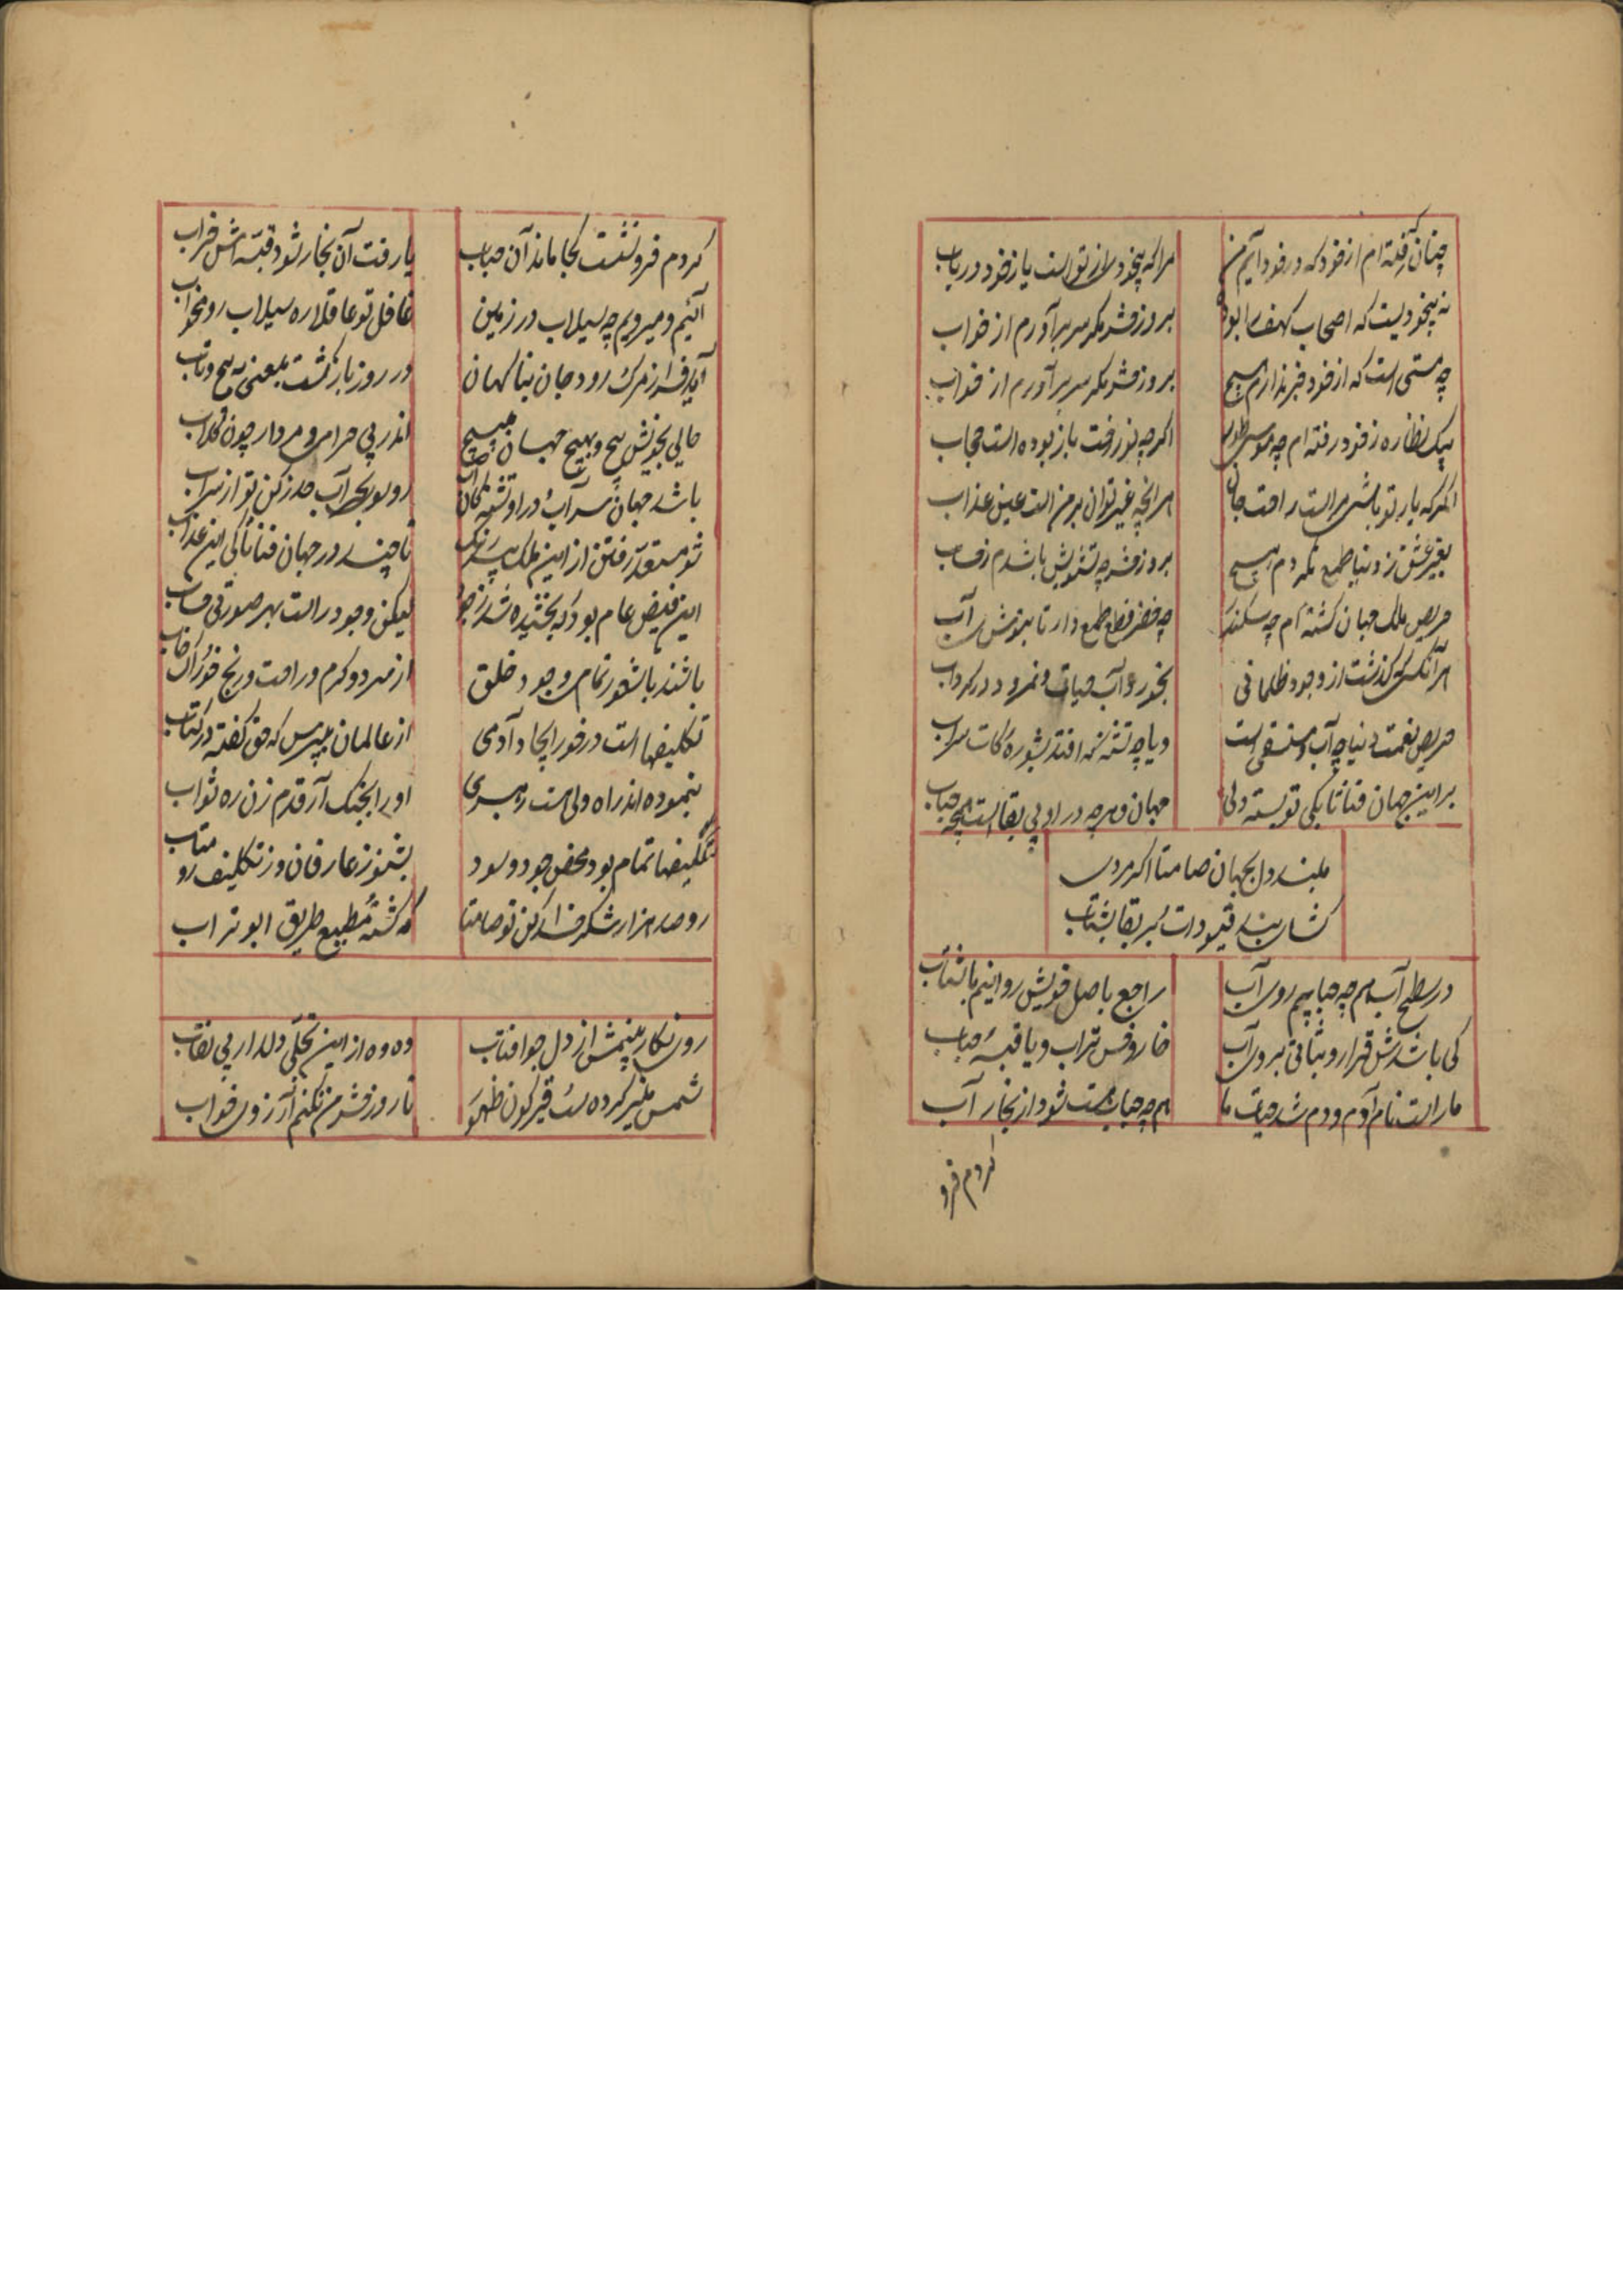 چنان رفته‌ام از خود که در خود آیم من
مرا که بیخودی از تو است یا ز خود دریاب
نه بیخودیست که اصحاب کهف را بود
بروز حشر مگر سر برآورم از خواب
چه مستی است که از خود خبر ندارم هیچ
بروز حشر مگر سر برآورم از خواب
بیک نظاره ز خود رفته‌ام چه موسی طور
اگر چه نور رخت باز بوده است حجاب
اگر که یار تو باشی مرا است راحت جان
هر آنچه غیر تو آن بر من است عین عذاب
بغیر عشق ز دنیا طمع نکردم هیچ
بروز حشر چه تشویش باشدم ز حساب
حریص ملک جهان گشته‌ام چه سکندر
چه خضر قطع طمع دار تا بنوشی آب
هر آنکسی که گذشت از وجود ظلمانی
بخورد آب حیات و نمرود در گرداب
حریص نعمت دنیا چه آب است
و یا چه تشنه افتد بشوره کات سراب
بر این جهان فنا تا بکی تو بسته دلی
جهان و هر چه در او بی بقا است همچه حباب
مبند دل بجهان صامتا اگر مردی
گشای بند قیودات بر بقا بشتاب
در سطح آب هم چه حبابیم روی آب
راجع باصل خویش روانیم باشتاب
کی باشدش قرار و ثباتی بروی آب
خار و خس تراب و یا قبه حباب
ما را است نام آدم و دم شد حیات ما
هم چه حباب هست شود از بخار آب
کردم فرو
کردم فرو نشست کجا ماند آن حباب
یا رفت آن بخار شود قبه‌اش خراب
آئیم و میرویم چه سیلاب در زمین
غافل تو عاقلا ره سیلاب رو مخواب
آید فرا ز مرگ رود جان بناگهان
در روز بازگشت بمعنی به پیچ و تاب
حالی بخویش پیچ و بهیچ جهان مپیچ
اندر پی حرامی و مردار چون کلاب
باشد جهان سراب و در او تشنه کامان
رو سوی بحر آب حذر کن تو از سراب
شو مستعد رفتن از این ملک پر ز رنگ
تا چند در جهان فنا تا کی این عذاب
این فیض عام بود که بخشیده شد ز جود
لیکن وجود راست بهر صورتی حساب
باشند با شعور تمامی وجود خلق
از سرد و گرم و راحت و رنج خوراک خاب
تکلیفها است در خور ایجاد آدمی
از عالمان بپرس که حق گفته در کتاب
بنموده‌اند راه ولی هست رهبری
او را بچنگ آر قدم زن ره ثواب
تکلیفها تمام بود محض جود و سود
بشنو ز عارفان و ز تکلیف رو متاب
رو صد هزار شکر خدا کن تو صامتا
که گشته مطیع طریق ابوتراب
روی نگار بینمش از دل چو آفتاب
وه وه از این تجلی دلدار بی نقاب
شمس منیر کرده ست قیرگون ظهور
تا روز حشر من نکنم آرزوی خواب